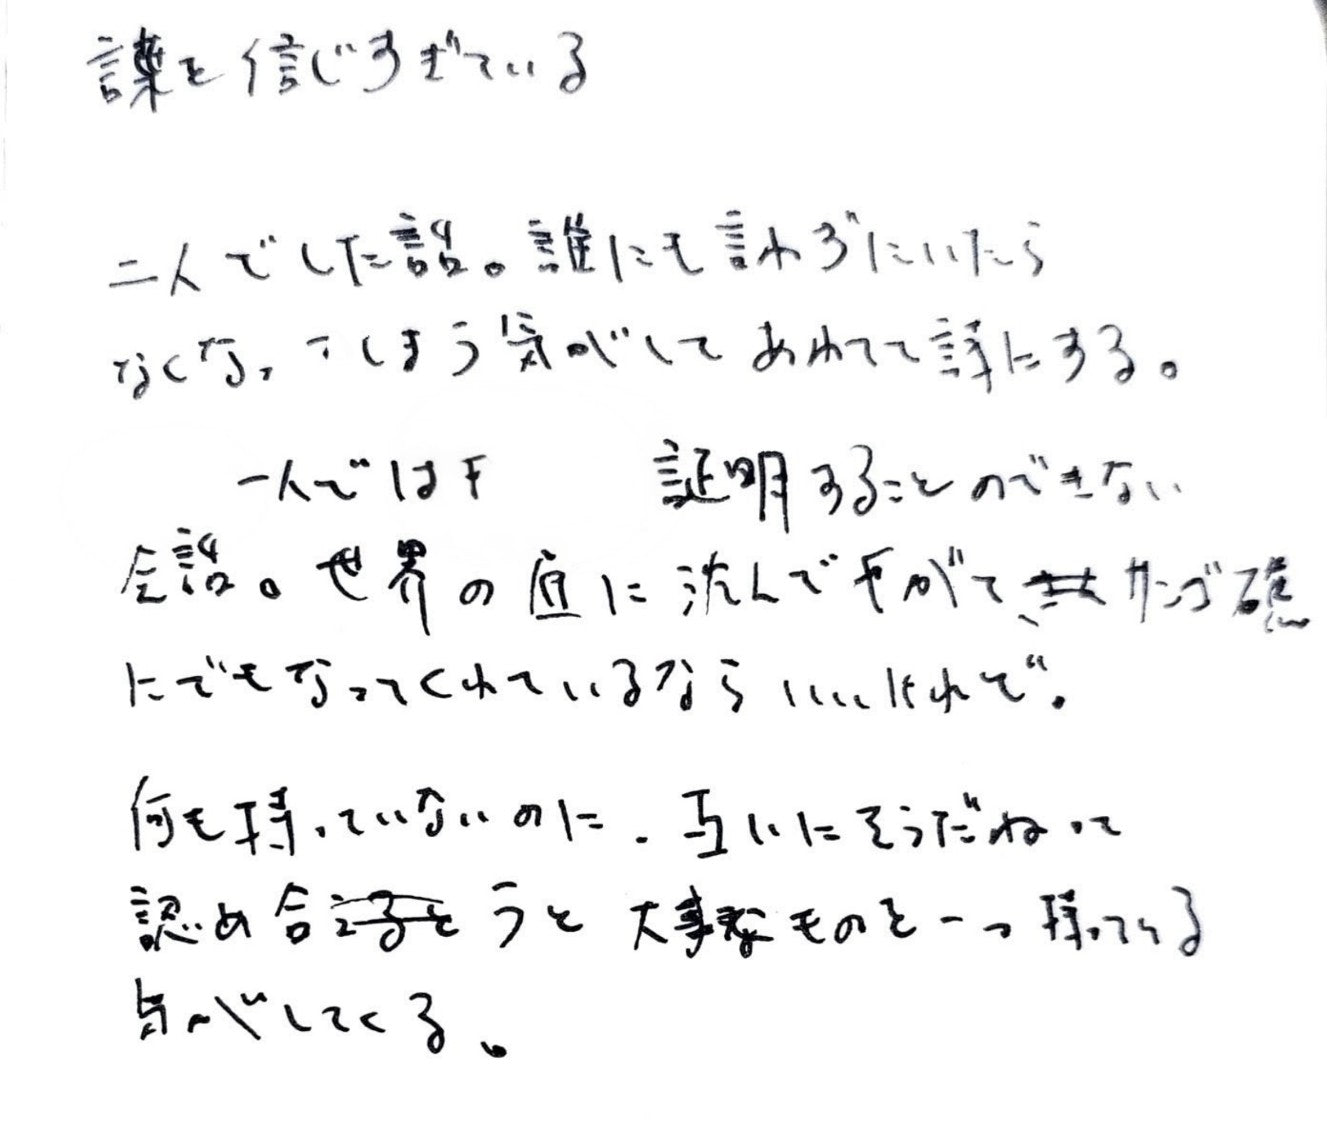 言葉を信じすぎている
二人でした話。誰にも言わずにいたら
なくなってしまう気がしてあわてて詩にする。
一人では 証明することのできない
会話。世界の底に沈んでやがてサンゴ礁
にでもなってくれているならいいけれど、
何も持っていないのに、互いにそうだねって
認め合うと大事なものを一つ持っている
気がしてくる。